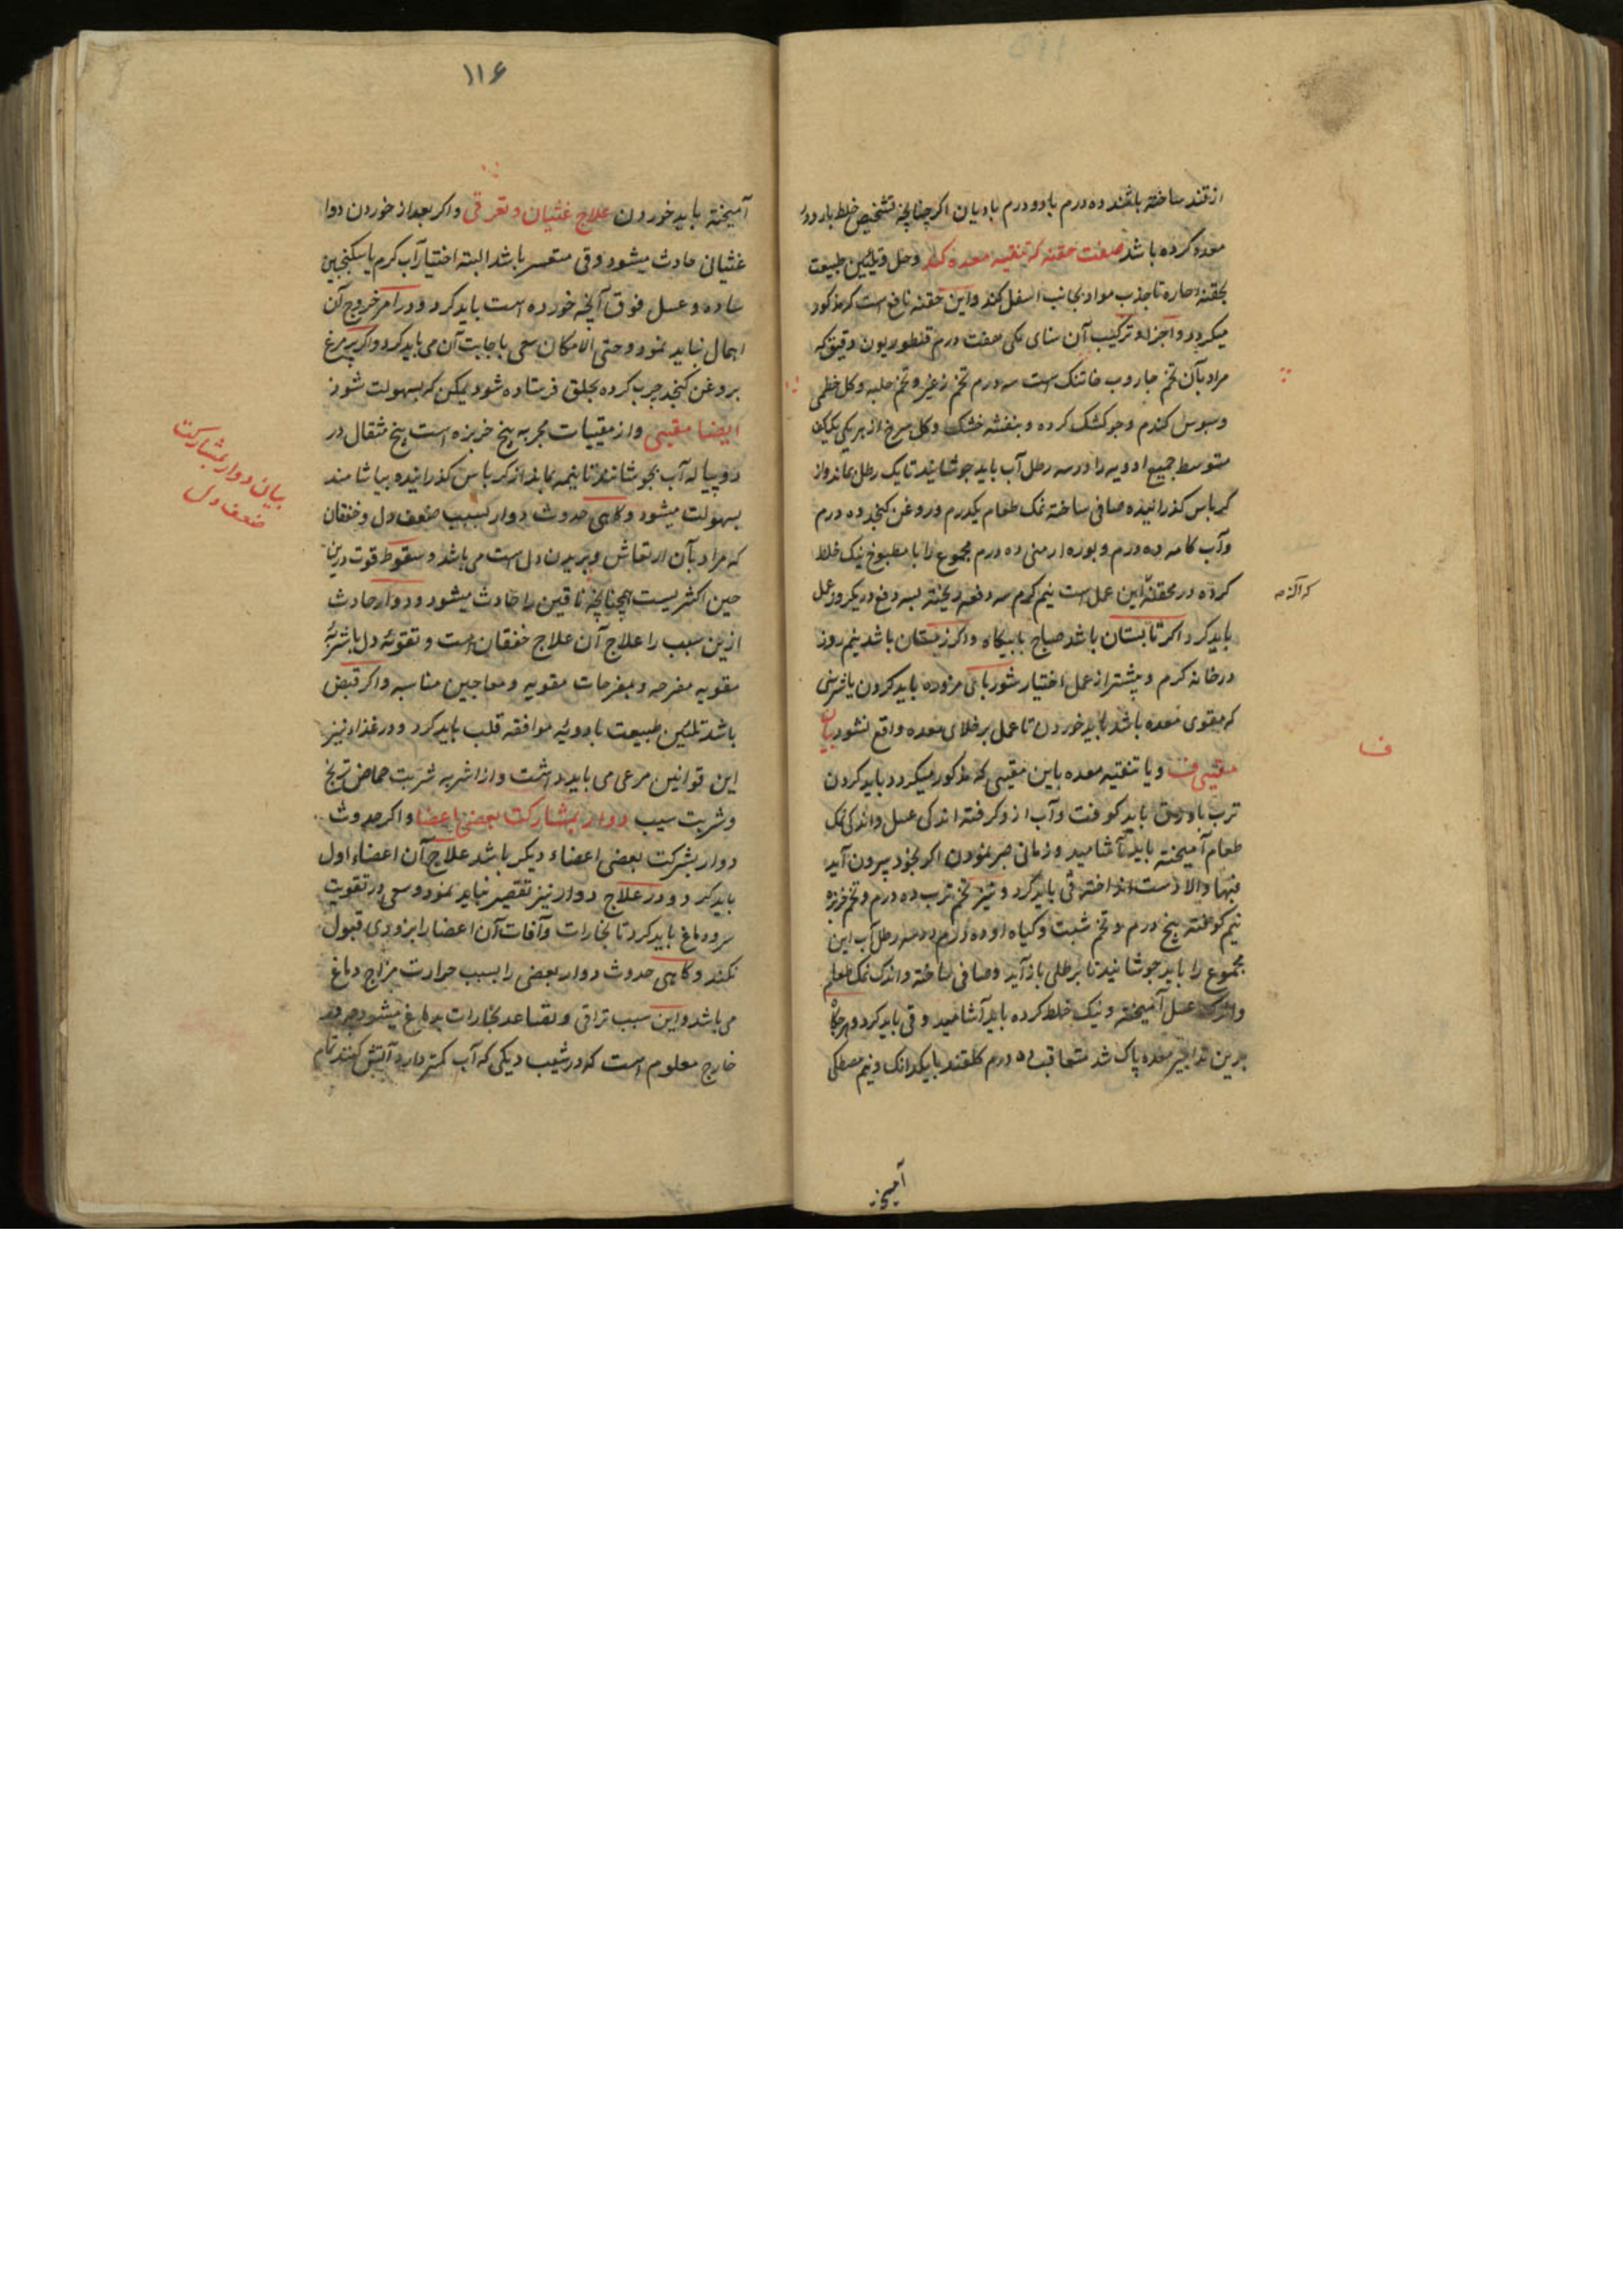 از قند ساخته باشند ده درم با دو درم بادیان اگر چنانچه تشخیص خلط بارد در
معده کرده باشد صفت حقنه که تنقیه معده کند و حل و تلئین طبیعت
بحقنهٔ حاره تا جذب مواد بجانب اسفل کند و این حقنه نافع است که مذکور
میکردد و اجزا و ترکیب آن سنای مکی هفت درم قنطوریون دقیق که
مراد بآن تخم جاروب است سه درم تخم و تخم حلبه و کل خطمی
و سبوس کندم و جو کشک کرده و بنفشه خشک و کل سرخ از هر یکی یک کف
متوسط جمیع ادویه را در سه رطل آب باید جوشانید تا یک رطل بماند و از
کرباس کذرانیده صافی ساخته نمک طعام یکدرم و روغن کنجد ده درم
و آب کامه ده درم و بوره ارمنی ده درم مجموع را با مطبوخ نیک خلط
کرده در محقنه این عمل است نیم کرم سه دفعه ریخته بسه دفع در یکروز عمل
که آلة
باید کرد اکر تابستان باشد صباح یا بیکاه و اکر زمستان باشد نیم روز
در خانه کرم و پیشتر از عمل اختیار شوربای مزوره باید کردن یا شربتی
که مقوی معده باشد باید خوردن تا عمل بر خلای معده واقع نشود بیان
ف
مقییی ف و یا تنقیه معده باین مقیی که مذکور میکردد باید کردن
ترب با ورق باید کوفت و آب از و کرفته اندکی عسل و اندکی نمک
طعام آمیخته باید آشامید و زمانی صبر نمودن اکر بخود بیرون آید
فبها و الا دست انداخته قی باید کرد و نیز تخم ترب ده درم و تخم خربزه
نیم کوفته پنج درم و تخم شبت و کیاه او ده درم در سه رطل آب این
مجموع را باید جوشانید تا برطلی باز آید و صافی ساخته و اندک نمک طعام
و اندک عسل آمیخته و نیک خلط کرده باید آشامید و قی باید کرد و هرکاه
بدین تدابیر معده پاک شد متعاقب ده درم کلقند با یکدانک و نیم مصطکی
آمیخته
۱۱۶
آمیخته باید خوردن علاج غثیان و تعذر قی و اکر بعد از خوردن دوا
غثیان حادث میشود و قی متعسر باشد البته اختیار آب کرم یا سکنجبین
ساده و عسل فوق آنچه خورده است باید کرد و در امر خروج آن
اهمال نباید نمود و حتی الامکان سعی با جابت آن می باید کرد و اکر پر مرغ
بروغن کنجد چرب کرده بحلق فرستاده شود یمکن که بسهولت شود
ایضا مقییی و از مقییات مجربه بیخ خربزه است پنج مثقال در
دو پیاله آب بجوشانند تا نیمه بماند از کرباس کذرانیده بیاشامند
بسهولت میشود و کاهی حدوث دوار بسبب ضعف دل و خفقان
بیان دوار بمشارکت
ضعف دل
که مراد بآن ارتعاش و پریدن دل است می باشد و سقوط قوت درین
حین اکثریست همچنانچه ناقهین را حادث میشود و دوار حادث
ازین سبب را علاج آن علاج خفقان است و تقویهٔ دل باشربهٔ
مقویه مفرحه و بمفرحات مقویه و معاجین مناسبه و اکر قبض
باشد تلئین طبیعت بادویهٔ موافقه قلب باید کرد و در غذا نیز
این قوانین مرعی می باید داشت و از اشربه شربت حماض ترنج
و شربت سیب دوار بمشارکت بعضی اعضا و اکر حدوث
دوار بشرکت بعضی اعضاء دیکر باشد علاج آن اعضاء اول
باید کرد و در علاج دوار نیز تقصیر نباید نمود و سعی در تقویت
سر و دماغ باید کرد تا بخارات و آفات آن اعضا را بزودی قبول
نکند و کاهی حدوث دوار بعضی را بسبب حرارت مزاج دماغ
می باشد و این سبب تراقی و تصاعد بخارات بدماغ میشود چه در
خارج معلوم است که در شیب دیکی که آب کمتر دارد آتش کنند تمام